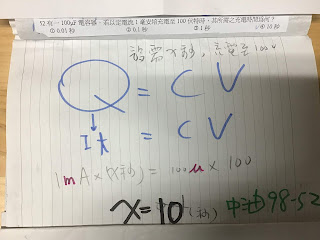 52 有一 100μF 電容器,若以定電流 1 毫安培充電至 100 伏特時,其所需之充電時間為何?
①0.01 秒 ②0.1 秒 ③1 秒 ④10 秒
設需 X 秒,充電至 100V
Q = CV
It = CV
1mA × X(秒) = 100μ × 100
X = 10 (秒)
中油98-52